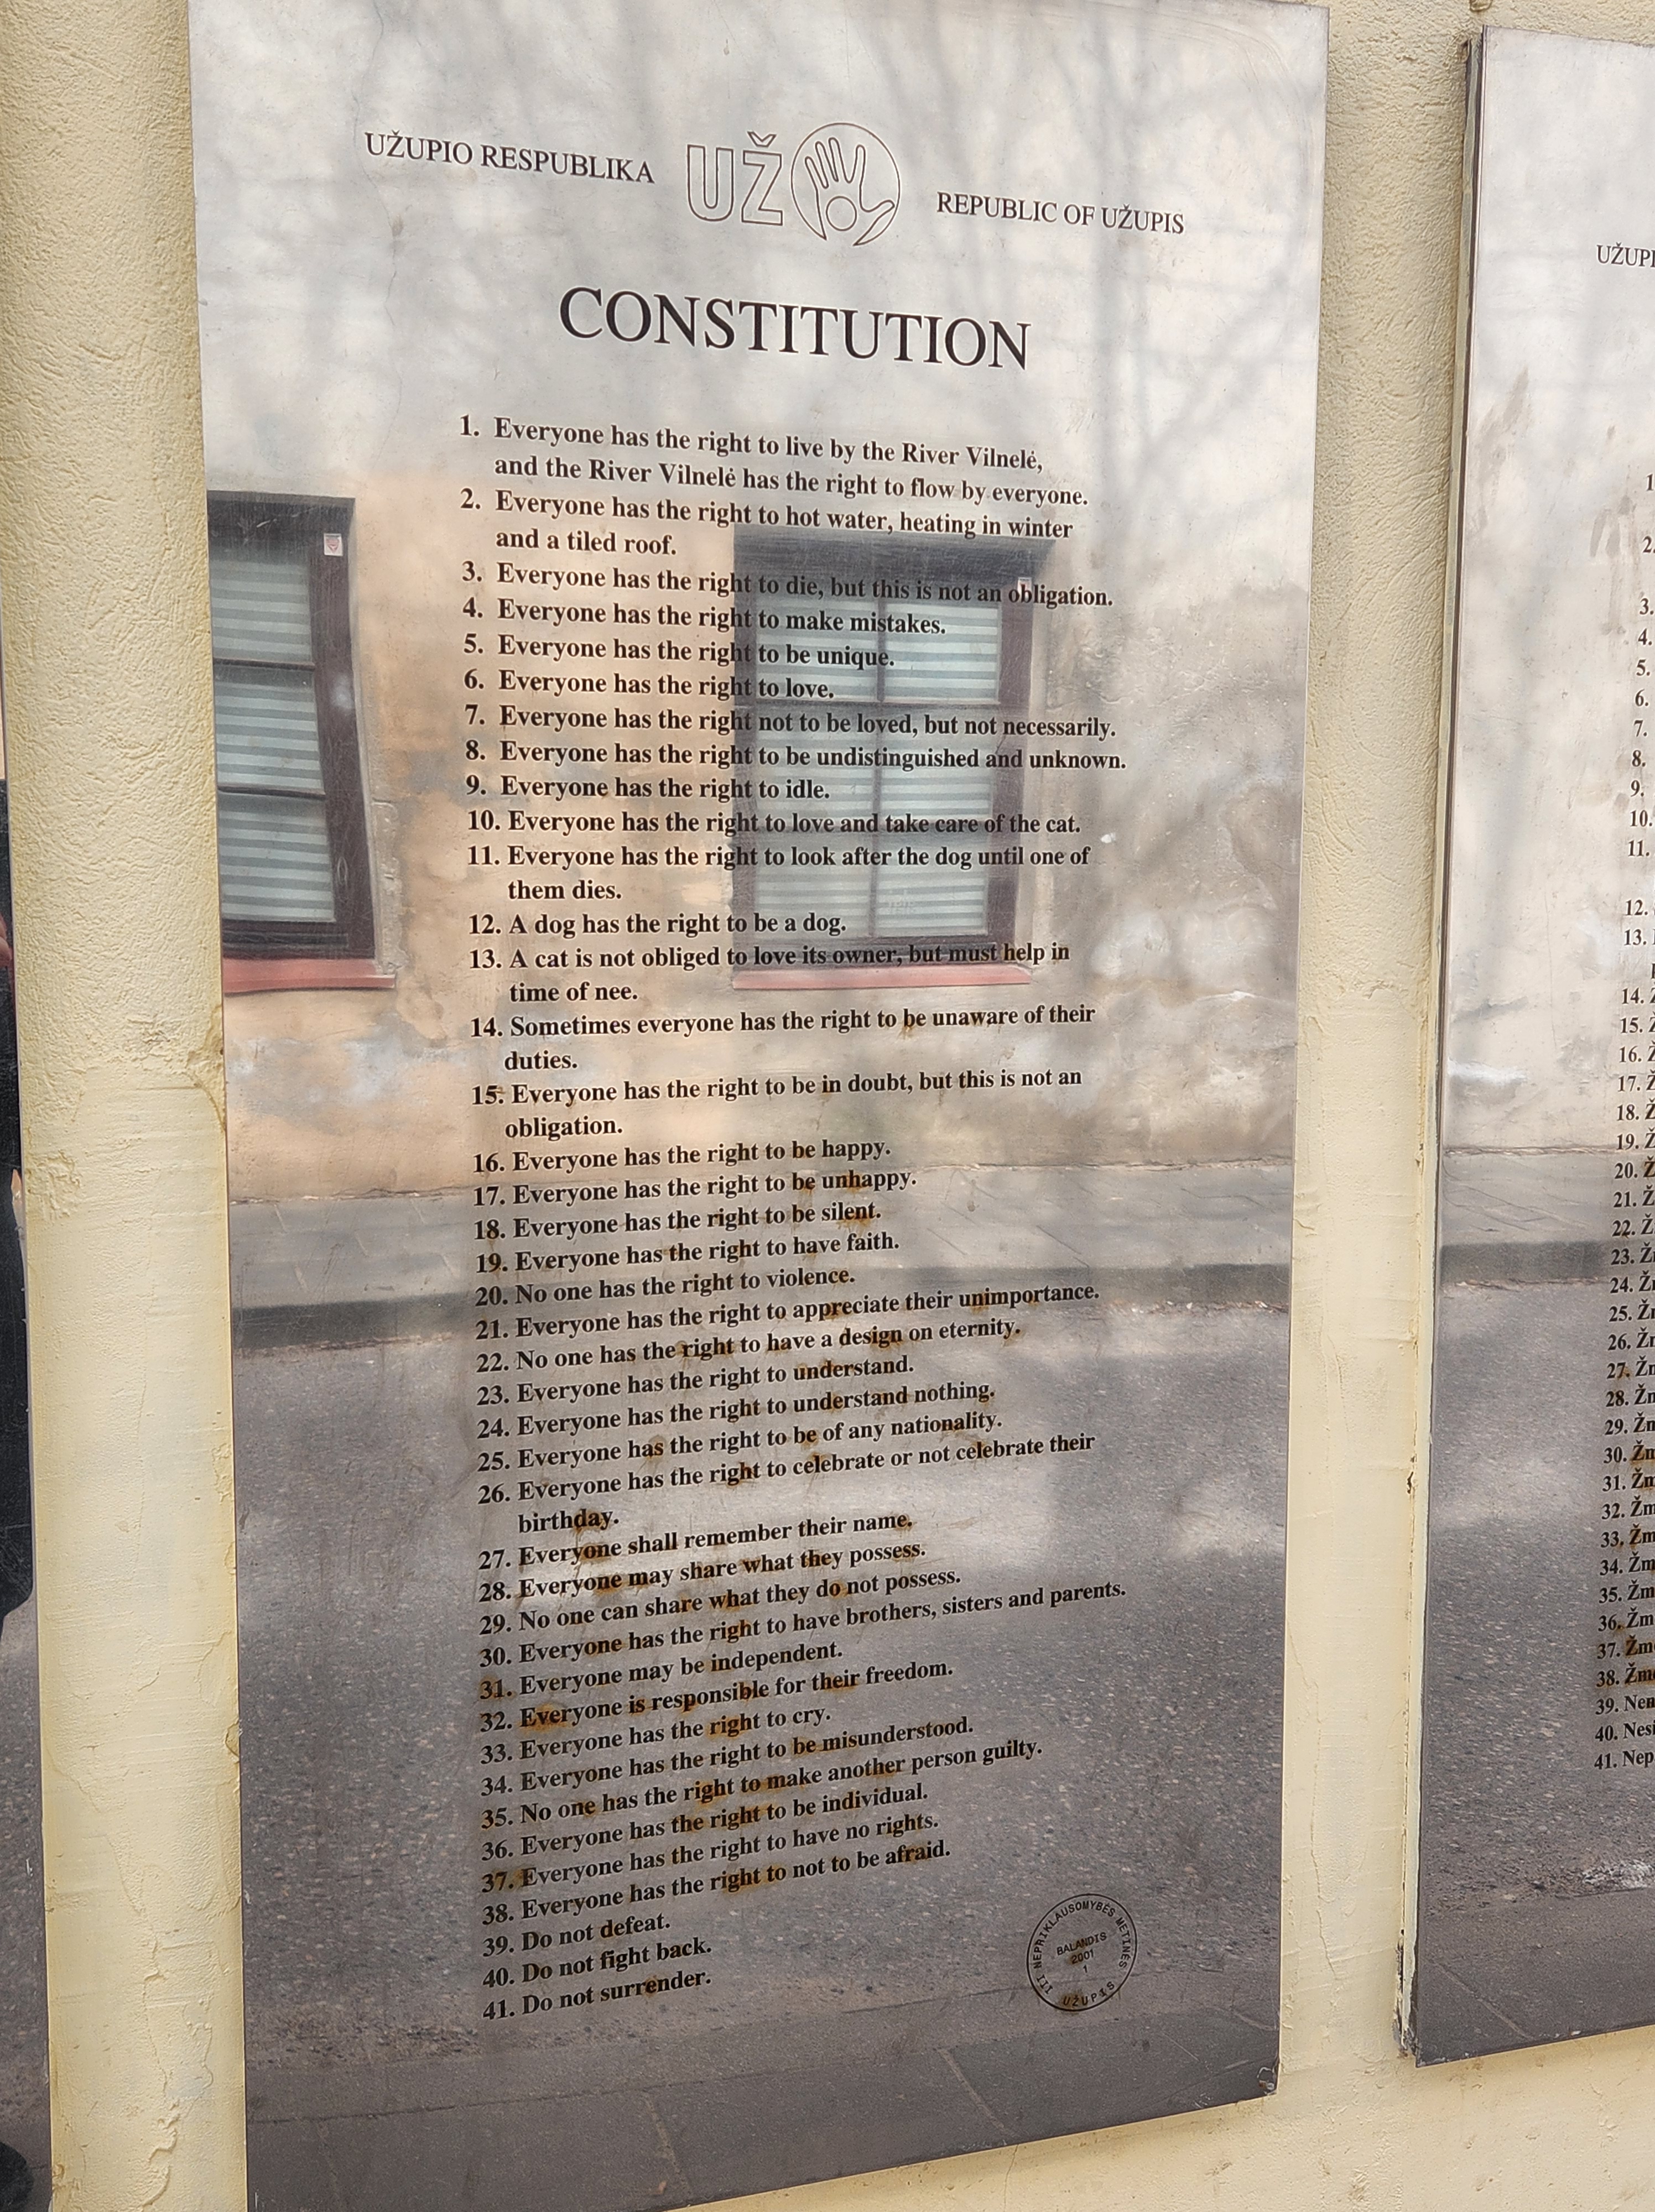 UŽUPIO RESPUBLIKA
UŽ
REPUBLIC OF UŽUPIS
CONSTITUTION
1. Everyone has the right to live by the River Vilnelė,
and the River Vilnelė has the right to flow by everyone.
2. Everyone has the right to hot water, heating in winter
and a tiled roof.
3. Everyone has the right to die, but this is not an obligation.
4. Everyone has the right to make mistakes.
5. Everyone has the right to be unique.
6. Everyone has the right to love.
7. Everyone has the right not to be loved, but not necessarily.
8. Everyone has the right to be undistinguished and unknown.
9. Everyone has the right to idle.
10. Everyone has the right to love and take care of the cat.
11. Everyone has the right to look after the dog until one of
them dies.
12. A dog has the right to be a dog.
13. A cat is not obliged to love its owner, but must help in
time of nee.
14. Sometimes everyone has the right to be unaware of their
duties.
15. Everyone has the right to be in doubt, but this is not an
obligation.
16. Everyone has the right to be happy.
17. Everyone has the right to be unhappy.
18. Everyone has the right to be silent.
19. Everyone has the right to have faith.
20. No one has the right to violence.
21. Everyone has the right to appreciate their unimportance.
22. No one has the right to have a design on eternity.
23. Everyone has the right to understand.
24. Everyone has the right to understand nothing.
25. Everyone has the right to be of any nationality.
26. Everyone has the right to celebrate or not celebrate their
birthday.
27. Everyone shall remember their name.
28. Everyone may share what they possess.
29. No one can share what they do not possess.
30. Everyone has the right to have brothers, sisters and parents.
31. Everyone may be independent.
32. Everyone is responsible for their freedom.
33. Everyone has the right to cry.
34. Everyone has the right to be misunderstood.
35. No one has the right to make another person guilty.
36. Everyone has the right to be individual.
37. Everyone has the right to have no rights.
38. Everyone has the right to not to be afraid.
39. Do not defeat.
40. Do not fight back.
41. Do not surrender.
III NEPRIKLAUSOMYBĖS METINĖS
BALANDIS
2001
1
UŽUPIS
UŽUPI
1
2.
3.
4.
5.
6.
7.
8.
9.
10.
11.
12.
13.
14. Ž
15. Ž
16. Ž
17. Ž
18. Ž
19. Ž
20. Ž
21. Ž
22. Ž
23. Žn
24. Žn
25. Žn
26. Žn
27. Žn
28. Žn
29. Žn
30. Žm
31. Žm
32. Žm
33. Žm
34. Žm
35. Žm
36. Žm
37. Žm
38. Žm
39. Nen
40. Nesi
41. Nep